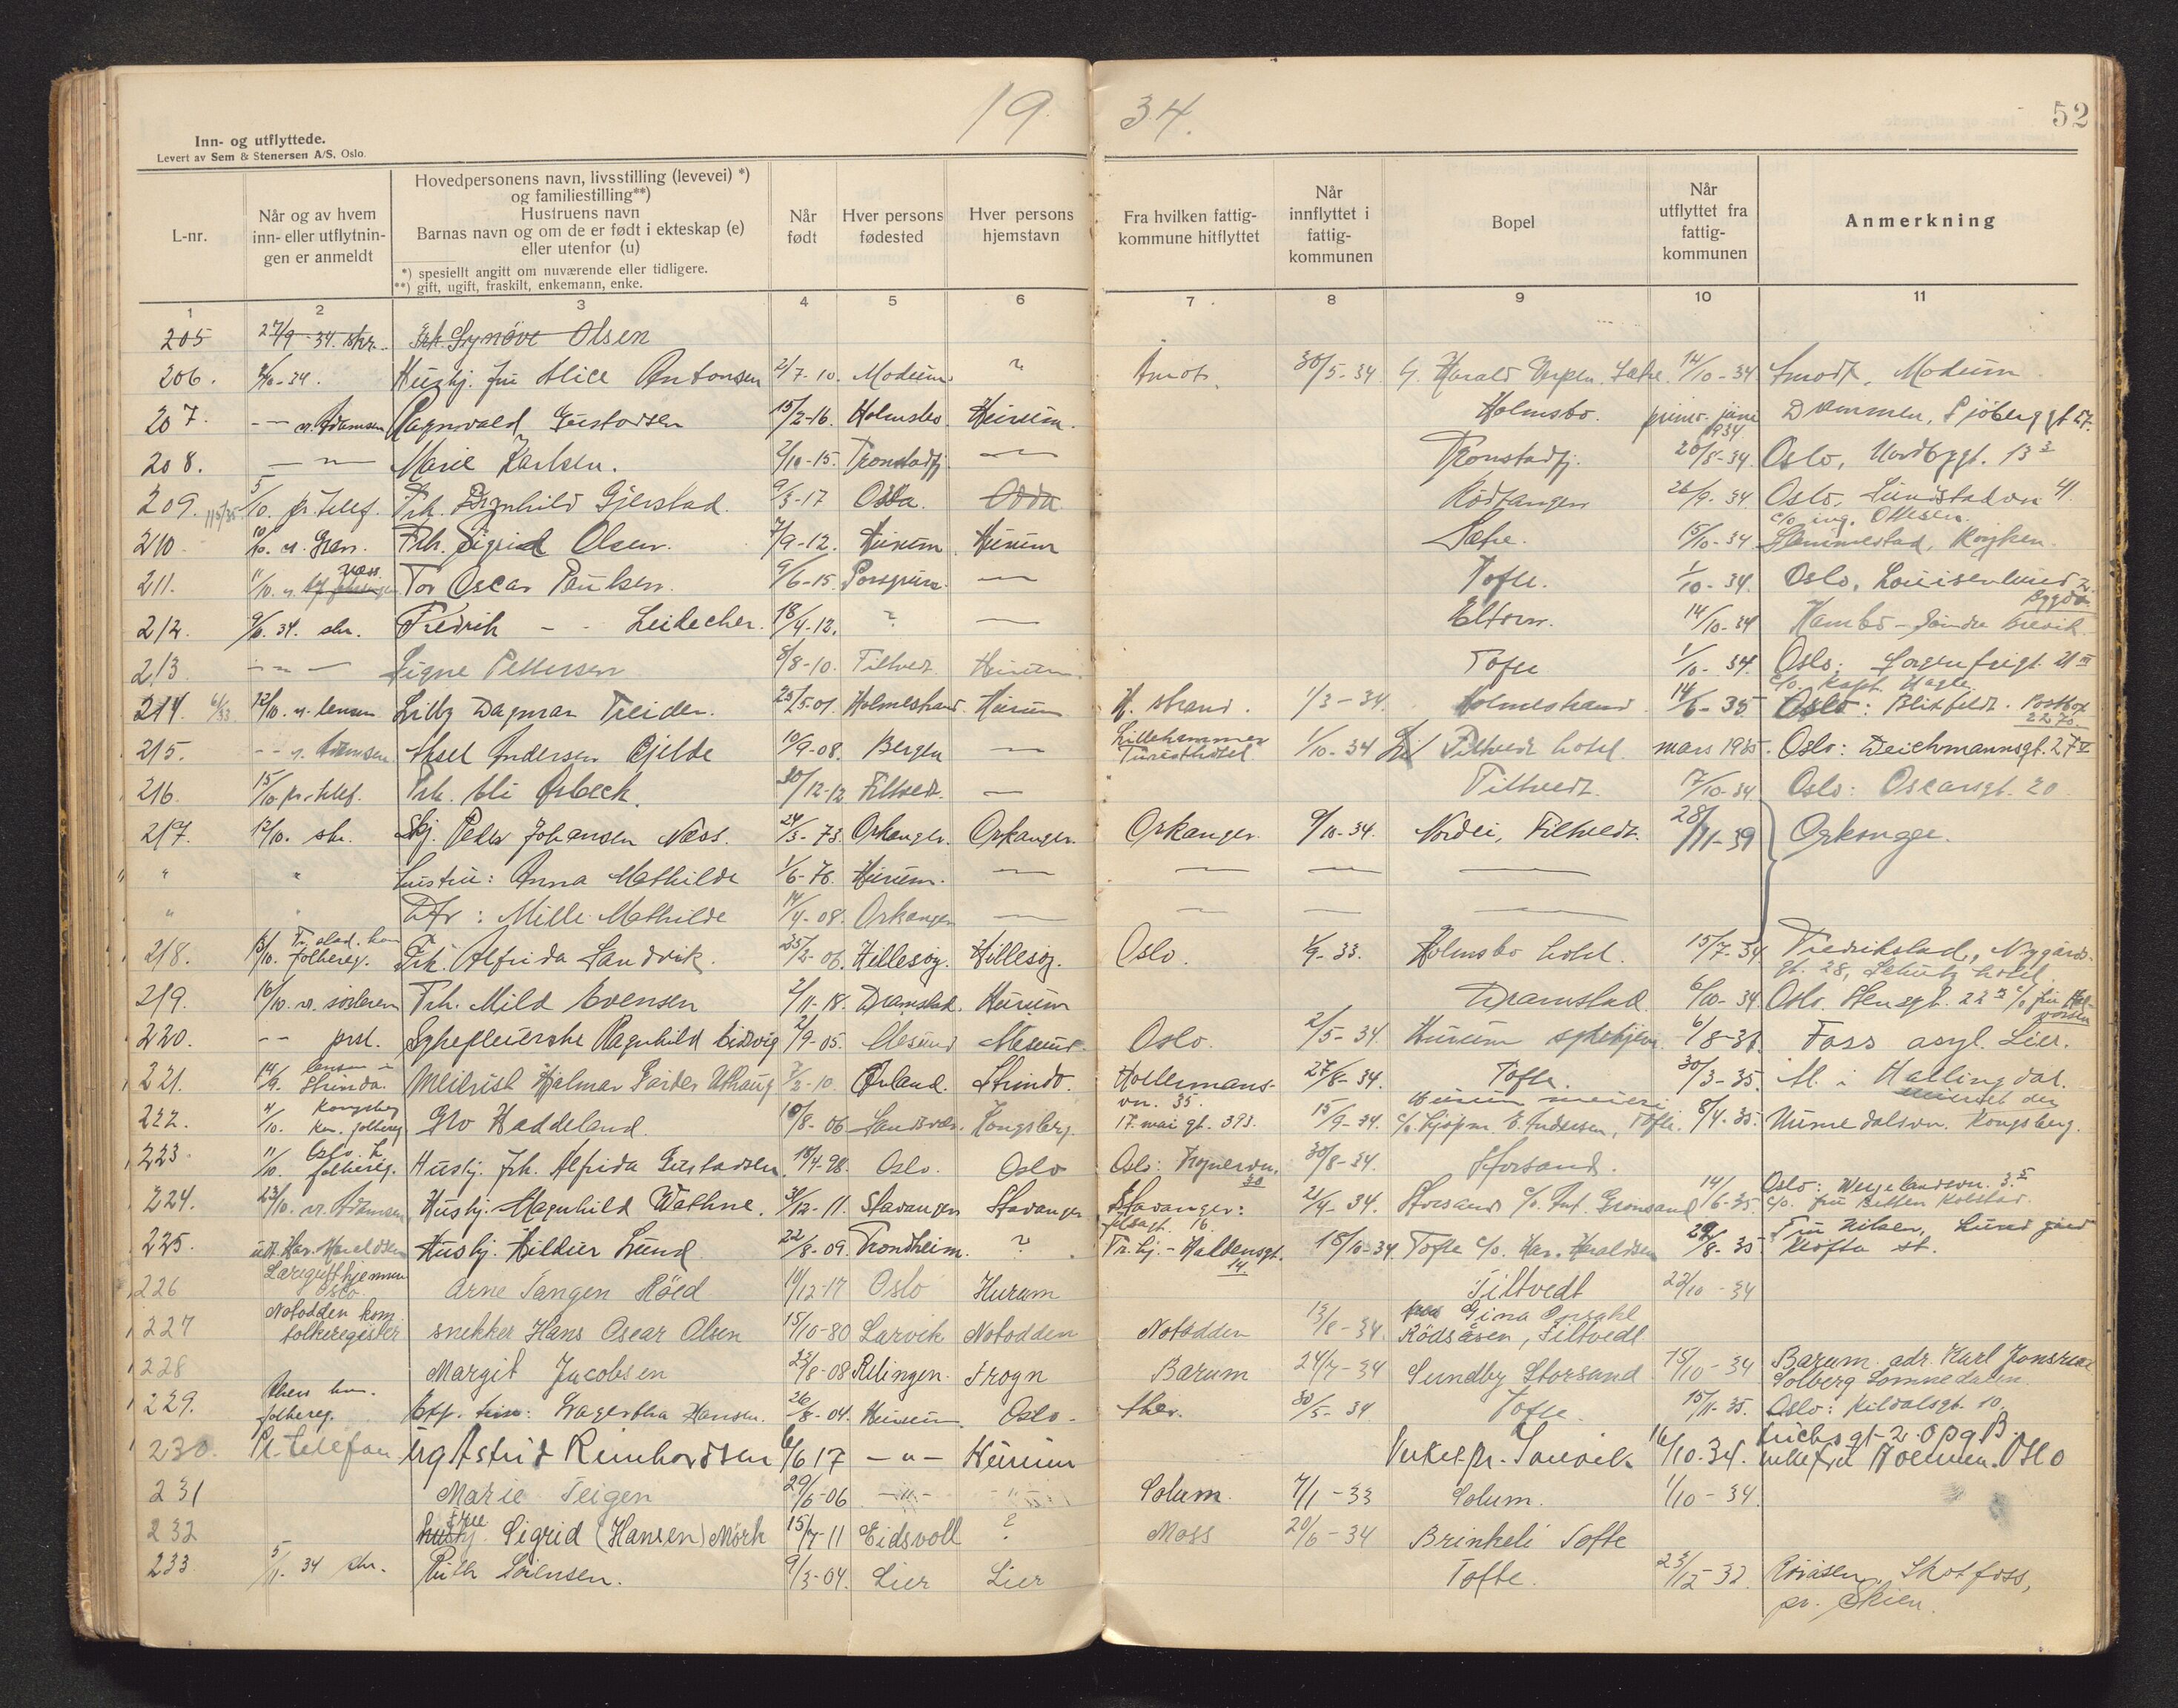 19 34.
52
Inn- og utflyttede.
Levert av Sem & Stenersen A/S. Oslo.
L-nr.
Når og av hvem inn- eller utflytnin- gen er anmeldt
Hovedpersonens navn, livsstilling (levevei) *)
og familiestilling**)
Hustruens navn
Barnas navn og om de er født i ekteskap (e)
eller utenfor (u)
*) spesiellt angitt om nuværende eller tidligere.
**) gift, ugift, fraskilt, enkemann, enke.
Når født
Hver persons fødested
Hver persons hjemstavn
Fra hvilken fattig- kommune hitflyttet
Når innflyttet i fattig- kommunen
Bopel
Når utflyttet fra fattig- kommunen
Anmerkning
1 2 3 4 5 6 7 8 9 10 11
205 27/9-34. skr. Frk. Synöve Olsen
206. 2/10-34. Hushj. fru Alice Antonsen 2/7-10. Modum ? Åmot 30/5-34 Harald Sætre 14/10-34 Åmodt, Modum
207. -- Adamsen Ragnvald Gustavsen 15/2-16. Holmsbo Hurum. Holmsbo. primo juni 1934 Drammen, Sjöbergsgt 27.
208. -"- Marie Karlsen. 2/10-15. Tronstadfj. -"- Tronstadfj. 20/8-34 Oslo, Nordbygt. 13
209. 5/10. pr. telef. Frk. Gjerstad. 9/3-17 Odda Odda Rödtangen 26/9-34 Oslo,
c/o ing. Ottesen.
210 10/10. Gran. Frk. Sigrid Olsen. 7/9-12. Hurum Hurum Sætre. 15/10-34 Slemmestad, Röyken.
211. 11/10. Næss. Tor Oscar Paulsen. 9/6-15 Porsgrun. -"- Tofte. 1/10-34. Oslo, Louisenlund 2.
Bygdö
212. 9/10. 34. skr. Fredrik - - Leidecher. 18/4-12. ? -"- Eltorn. 14/10-34
213 -"- Signe Pettersen 8/8-10. Filtvedt Hurum Tofte 1/10-34. Oslo: Sorgenfrigt. 21 III
c/o Kapt. Hagle
214. 12/10. Lilly Dagmar Treider. 25/5-01. Holmestrand Hurum H. strand. 1/3-34. Holmestrand 14/6-35 Oslo: Blixfeldt. Postbox
2270
215. -- Adamsen Aksel Andersen Gjelde 10/9-08. Bergen -"- Lillehammer
Turisthotel. 1/10-34 Filtvedt hotel mars 1935. Oslo: Deichmannsgt. 27 V
216. 15/10 pr. telef. Frk. Eli Ørbeck. 30/12-12 Filtvedt. -"- Filtvedt. 17/10-34 Oslo: Oscarsgt. 20
217. 12/10. skr. Peder Johansen Næss. 24/3-73. Orkanger. Orkanger. Orkanger. 9/10-34. Nordli, Filtvedt. 28/11-39 Orkanger.
" " hustru: Anna Mathilde 1/6-76. Hurum. -"- -"- -"- -"-
" " Dtr: Mille Mathilde 14/4-08. Orkanger -"- -"- -"- -"-
218. 13/10. Fr.stad. kom
folkereg. Frk. Alfrida Sandvik. 25/2-06. Hillesög. Hillesög. Oslo. 1/9-33. Holmsbo hotel. 15/7-34 Fredrikstad, Nygårds-
gt. 28, Schütz hotel.
219. 16/10. Frk. Mild Evensen 2/11-18. Dramstad. Hurum Dramstad. 6/10-34 Oslo. Stensgt. 22 c/o fru
220. -- prst. Sykepleierske Ragnhild Eidsvig 2/9-05. Ålesund Ålesund. Oslo. 2/5-34. Hurum sykehjem. 6/8-36 Foss asyl. Lier.
221. 14/9. Strinda. Meierist Hjalmar Uthaug 7/3-10. Örland. Strinda. Hollermans-
vn. 35. 27/6-34. Tofte.
Hurum meieri 30/3-35. Ål i Hallingdal.
meieriet der
222. 11/10. Kongsberg
kom. folkereg. Gro Haddeland. 10/8-06 Kongsberg. 17. mai gt. 393. 15/9-34. c/o Kjöpm. E. Andersen, Tofte. 8/4-35. Numedalsvn. Kongsberg.
223. 11/10. Oslo
folkereg. Hushj. Frk. Alfrida Gustavsen. 18/4-98. Oslo. Oslo Oslo: Frognervn.
30 30/8-34. Storsand.
224. 23/10. Adamsen Hushj. Magnhild Wathne. 31/12-11. Stavanger Stavanger Stavanger:
16. 21/4-34. Storsand c/o Ant. Grimsrud 14/6-35. Oslo: Wergelandsvn. 3.
c/o fru Betten Kolstad.
225. Har. Haraldsen Hushj. Hildur Lund. 22/8-09. Trondheim. ? Tr.hj. - Haldensgt.
14 18/10-34. Tofte c/o. Har. Haraldsen 29/8-35 Fru Nilsen, Lund gård
Klöfta st.
226 Læregutthjemmet
Oslo. Arne Tangen Röed 10/12-17 Oslo Hurum Filtvedt 22/10-34
227 Notodden kom.
folkeregister snekker Hans Oscar Olsen 15/10-80 Larvik Notodden Notodden 13/8-34. Gina
Rödsåsen, Filtvedt.
228 Margit Jacobsen 23/8-08 Relingen. Frogn Bærum 24/7-34 Sundby Storsand 15/10-34 Bærum adr. Karl Jonsrud
Solberg Lommedalen.
229. Akers kom.
folkereg. Hansen. 26/8-04. Hurum. Oslo. Aker. 30/5-34 Tofte. 15/11-35. Oslo: Kildalsgt. 10.
230. Pr. telefon ug Astrid Reinhardtsen 6/6 17 -"- Hurum 16/10-34. gt-2. Opg B.
Oslo
231 Marie Teigen 29/6-06 -"- Solum. 7/1-33 Solum. 1/10-34.
232 frue
hushj. Sigrid (Hansen) Mörk 15/7-11 Eidsvoll ? Moss 20/6-34 Brinkeli Tofte
233. 5/11. 34 skr. Ruth Lorensen. 9/3-04. Lier Lier Tofte. 23/12-32. Skotfoss,
pr. Skien.